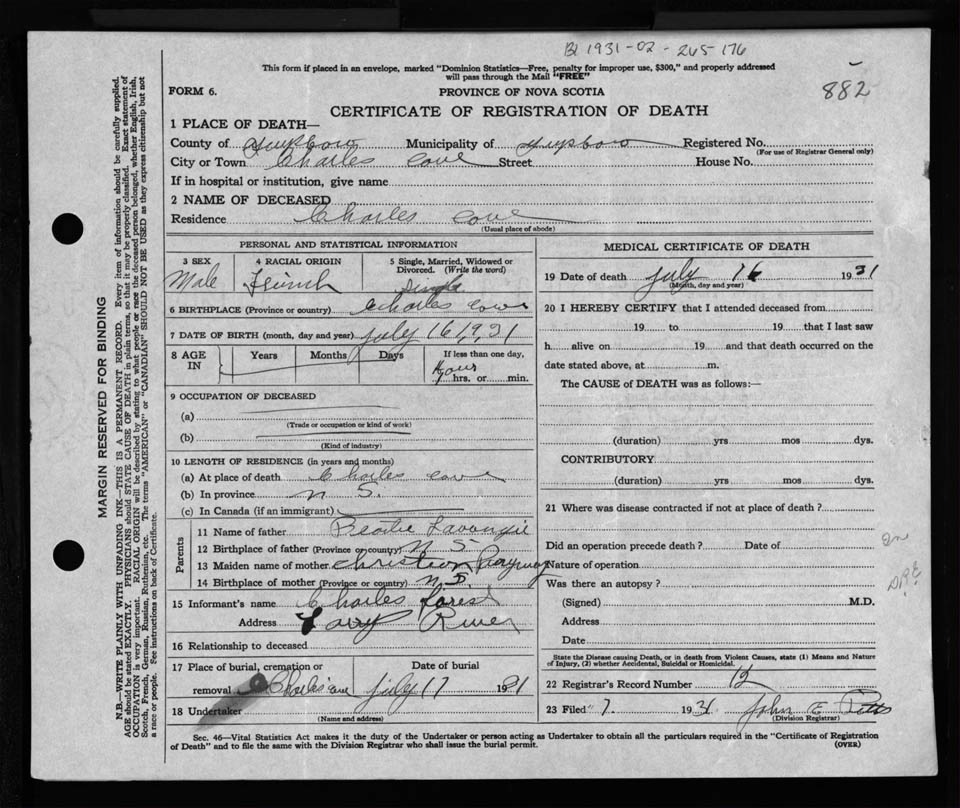 B 1931-02-265-176
882
This form if placed in an envelope, marked "Dominion Statistics—Free, penalty for improper use, $300," and properly addressed
will pass through the Mail "FREE"
FORM 6.
PROVINCE OF NOVA SCOTIA
CERTIFICATE OF REGISTRATION OF DEATH
1 PLACE OF DEATH—
County of Guysboro Municipality of Guysboro Registered No.
(For use of Registrar General only)
City or Town Charles Cove Street House No.
If in hospital or institution, give name
2 NAME OF DECEASED
Residence Charles Cove
(Usual place of abode)
PERSONAL AND STATISTICAL INFORMATION
3 SEX Male
4 RACIAL ORIGIN French
5 Single, Married, Widowed or
Divorced. (Write the word)
Single
6 BIRTHPLACE (Province or country) Charles Cove
7 DATE OF BIRTH (month, day and year) July 16 1931
8 AGE IN Years Months Days
If less than one day,
hrs. or min.
9 OCCUPATION OF DECEASED
(a)
(Trade or occupation or kind of work)
(b)
(Kind of industry)
10 LENGTH OF RESIDENCE (in years and months)
(a) At place of death Charles Cove
(b) In province N S.
(c) In Canada (if an immigrant)
Parents
11 Name of father
12 Birthplace of father (Province or country) N S
13 Maiden name of mother
14 Birthplace of mother (Province or country) N S
15 Informant's name Charles
Address River
16 Relationship to deceased
17 Place of burial, cremation or
removal Charles Cove
Date of burial
July 17 1931
18 Undertaker
(Name and address)
MEDICAL CERTIFICATE OF DEATH
19 Date of death July 16 1931
(Month, day and year)
20 I HEREBY CERTIFY that I attended deceased from
19 to 19 that I last saw
h alive on 19 and that death occurred on the
date stated above, at m.
The CAUSE of DEATH was as follows:—
(duration) yrs mos dys.
CONTRIBUTORY
(duration) yrs mos dys.
21 Where was disease contracted if not at place of death?
Did an operation precede death? Date of
Nature of operation
Was there an autopsy?
(Signed) M.D.
Address
Date
State the Disease causing Death, or in death from Violent Causes, state (1) Means and Nature
of Injury, (2) whether Accidental, Suicidal or Homicidal.
22 Registrar's Record Number 12
23 Filed 7. 1931 John E
(Division Registrar)
Sec. 46—Vital Statistics Act makes it the duty of the Undertaker or person acting as Undertaker to obtain all the particulars required in the "Certificate of Registration
of Death" and to file the same with the Division Registrar who shall issue the burial permit.
(OVER)
MARGIN RESERVED FOR BINDING
N.B.—WRITE PLAINLY WITH UNFADING INK—THIS IS A PERMANENT RECORD. Every item of information should be carefully supplied.
AGE should be stated EXACTLY. PHYSICIANS should STATE CAUSE OF DEATH in plain terms, so that it may be properly classified. Exact statement of
OCCUPATION is very important. RACIAL ORIGIN will be described by stating to what people or race the deceased person belonged, whether English, Irish,
Scotch, French, German, Russian, Ruthenian, etc. The terms "AMERICAN" or "CANADIAN" SHOULD NOT BE USED as they express citizenship but not
a race or people. See instructions on back of Certificate.